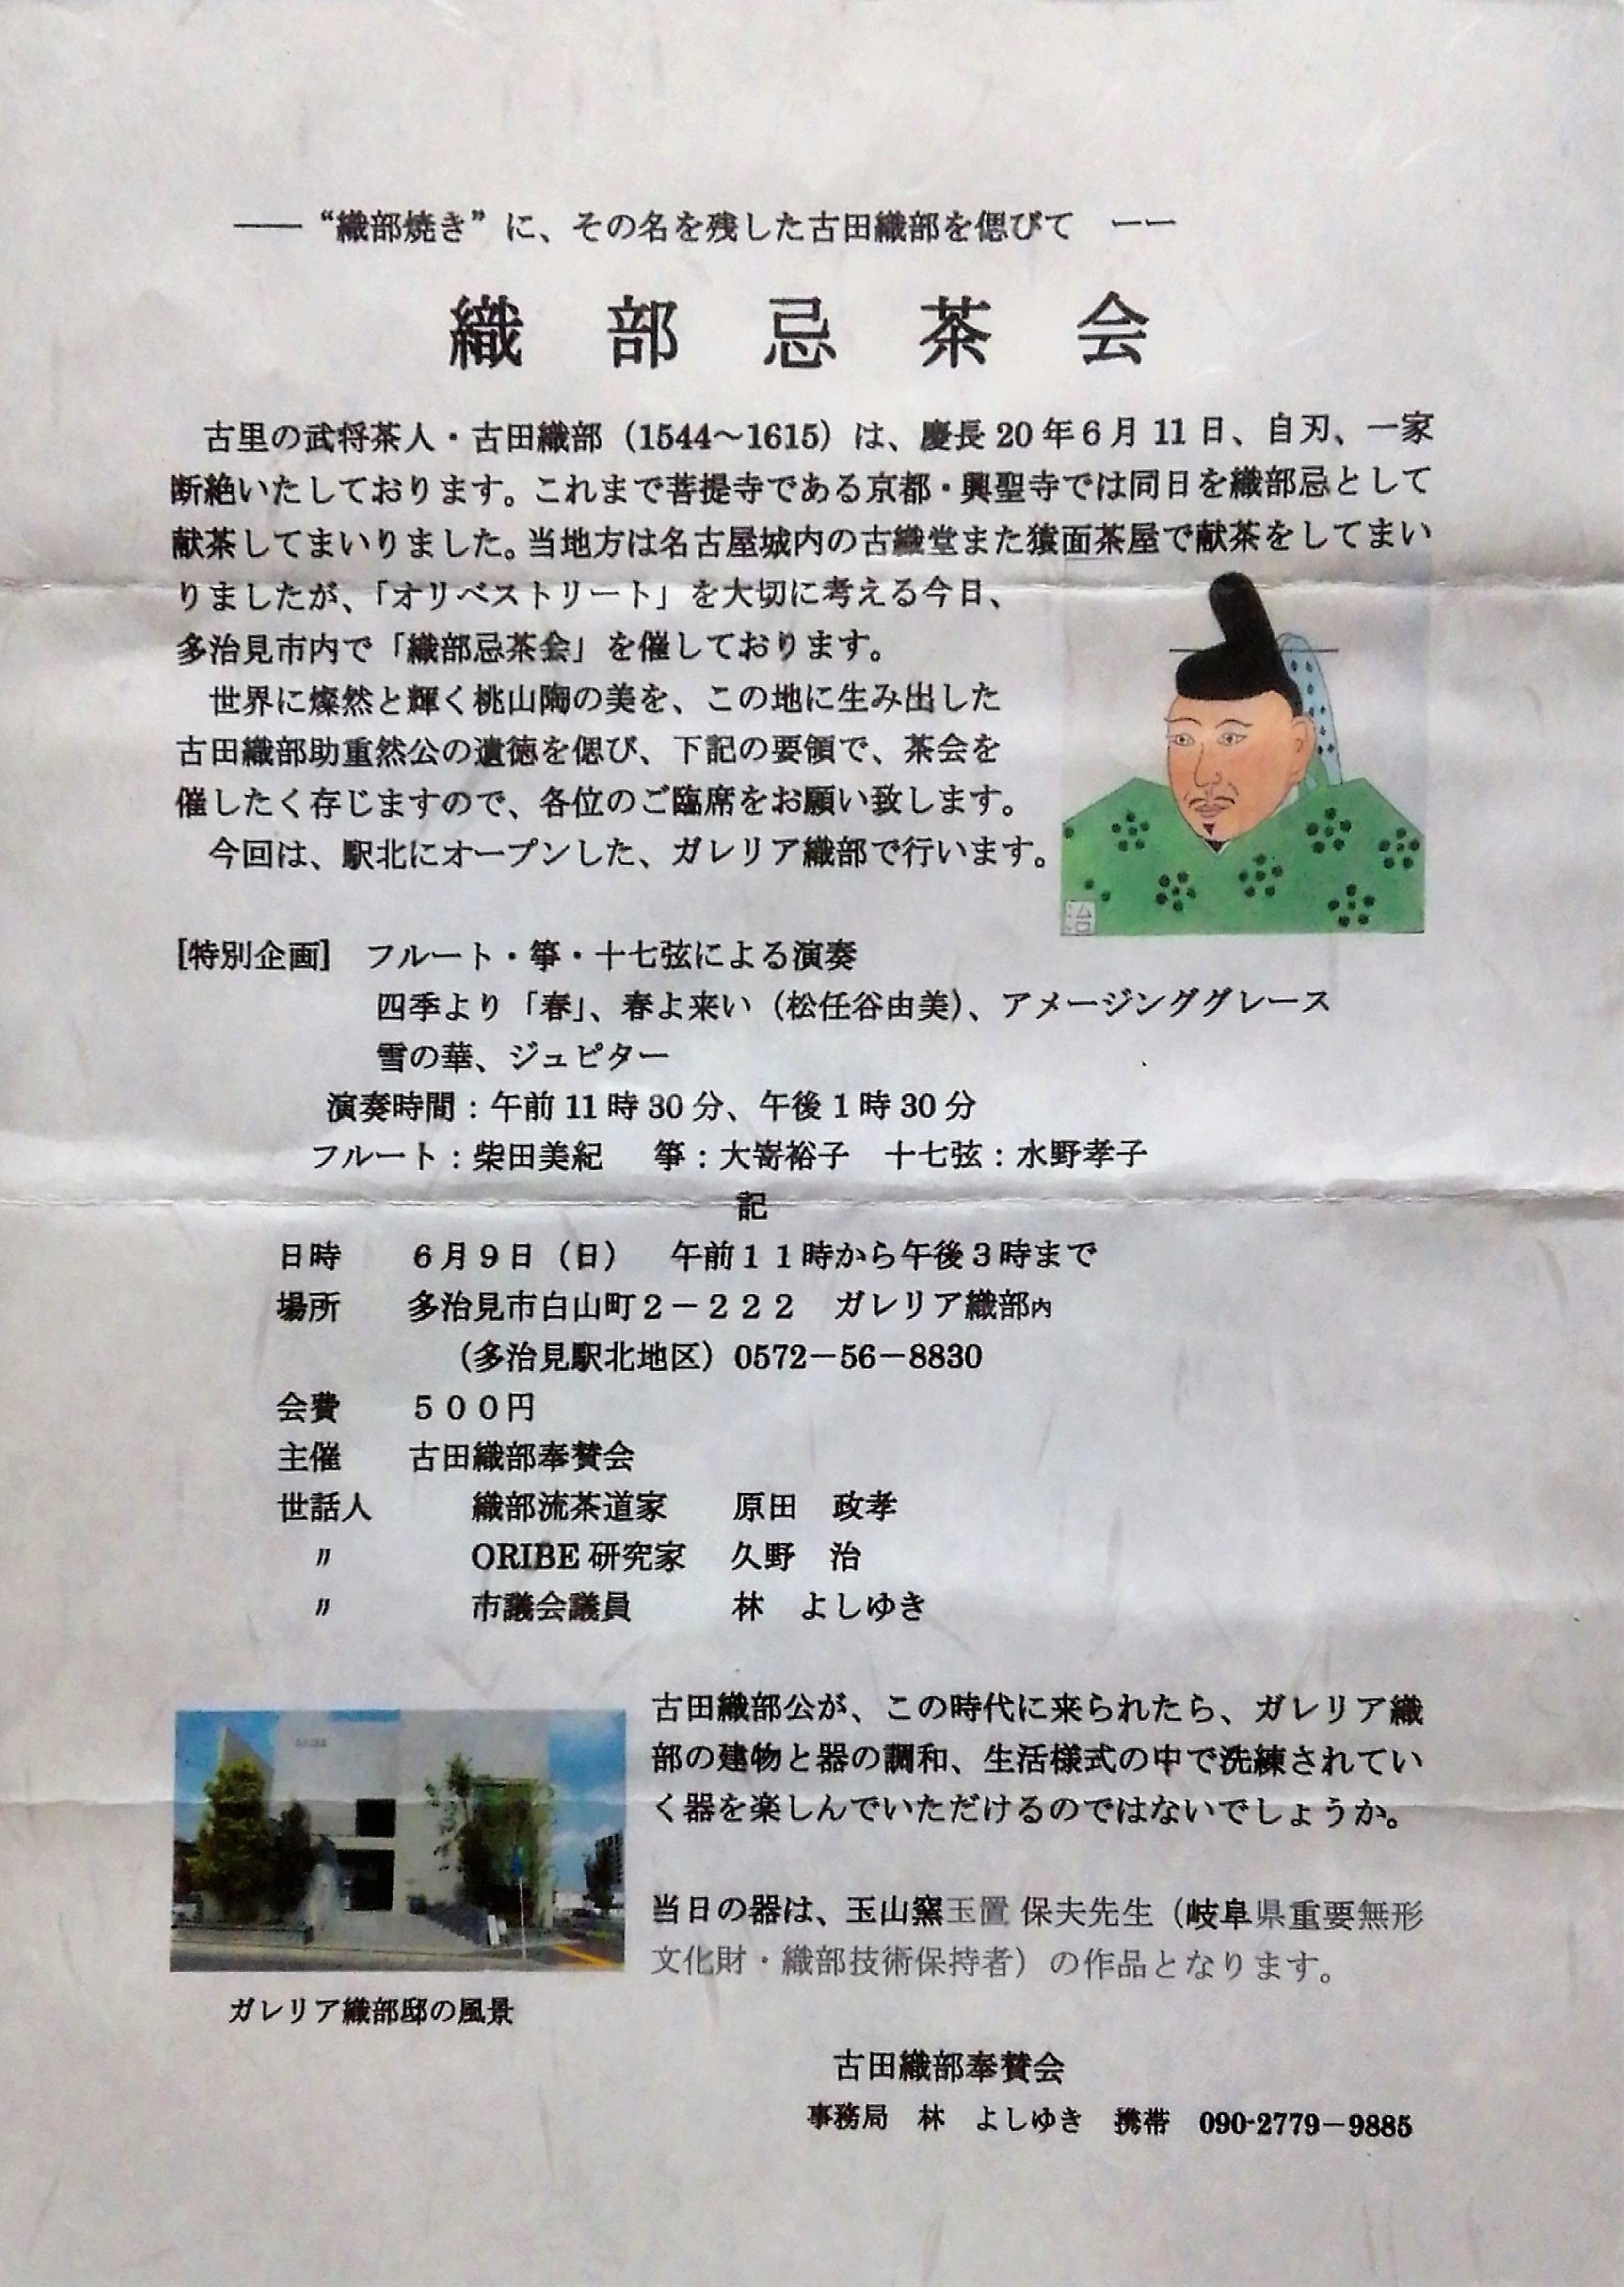 ―― “織部焼き”に、その名を残した古田織部を偲びて ーー
織部忌茶会
古里の武将茶人・古田織部（1544～1615）は、慶長20年6月11日、自刃、一家
断絶いたしております。これまで菩提寺である京都・興聖寺では同日を織部忌として
献茶してまいりました。当地方は名古屋城内の古織堂また猿面茶屋で献茶をしてまい
りましたが、「オリベストリート」を大切に考える今日、
多治見市内で「織部忌茶会」を催しております。
世界に燦然と輝く桃山陶の美を、この地に生み出した
古田織部助重然公の遺徳を偲び、下記の要領で、茶会を
催したく存じますので、各位のご臨席をお願い致します。
今回は、駅北にオープンした、ガレリア織部で行います。
治
［特別企画］ フルート・箏・十七弦による演奏
四季より「春」、春よ来い（松任谷由美）、アメージンググレース
雪の華、ジュピター
演奏時間：午前11時30分、午後1時30分
フルート：柴田美紀 箏：大嵜裕子 十七弦：水野孝子
記
日時 ６月９日（日） 午前１１時から午後３時まで
場所 多治見市白山町２－２２２ ガレリア織部内
（多治見駅北地区）0572－56－8830
会費 ５００円
主催 古田織部奉賛会
世話人 織部流茶道家 原田 政孝
〃 ORIBE研究家 久野 治
〃 市議会議員 林 よしゆき
古田織部公が、この時代に来られたら、ガレリア織
部の建物と器の調和、生活様式の中で洗練されてい
く器を楽しんでいただけるのではないでしょうか。
当日の器は、玉山窯玉置 保夫先生（岐阜県重要無形
文化財・織部技術保持者）の作品となります。
ガレリア織部邸の風景
古田織部奉賛会
事務局 林 よしゆき 携帯 090-2779－9885